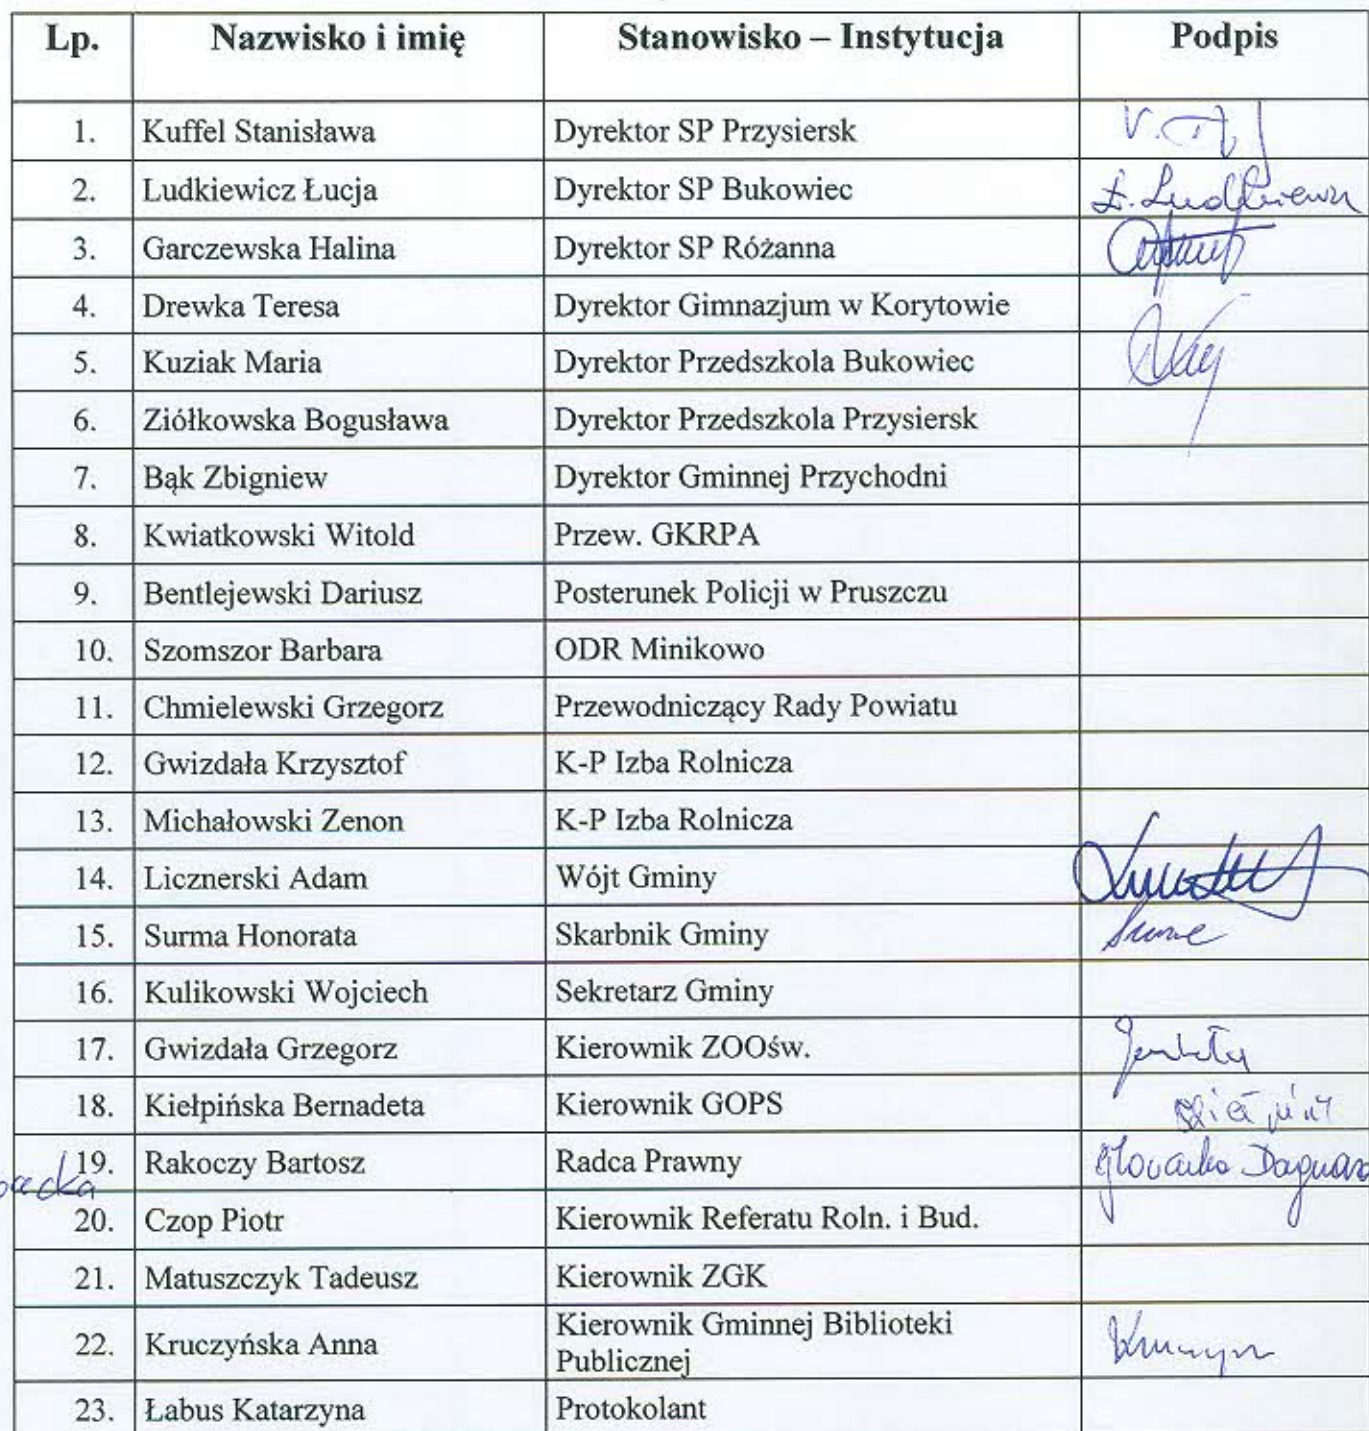 Lp. Nazwisko i imię Stanowisko – Instytucja Podpis
1. Kuffel Stanisława Dyrektor SP Przysiersk
2. Ludkiewicz Łucja Dyrektor SP Bukowiec
3. Garczewska Halina Dyrektor SP Różanna
4. Drewka Teresa Dyrektor Gimnazjum w Korytowie
5. Kuziak Maria Dyrektor Przedszkola Bukowiec
6. Ziółkowska Bogusława Dyrektor Przedszkola Przysiersk
7. Bąk Zbigniew Dyrektor Gminnej Przychodni
8. Kwiatkowski Witold Przew. GKRPA
9. Bentlejewski Dariusz Posterunek Policji w Pruszczu
10. Szomszor Barbara ODR Minikowo
11. Chmielewski Grzegorz Przewodniczący Rady Powiatu
12. Gwizdała Krzysztof K-P Izba Rolnicza
13. Michałowski Zenon K-P Izba Rolnicza
14. Licznerski Adam Wójt Gminy
15. Surma Honorata Skarbnik Gminy
16. Kulikowski Wojciech Sekretarz Gminy
17. Gwizdała Grzegorz Kierownik ZOOśw.
18. Kiełpińska Bernadeta Kierownik GOPS
19. Rakoczy Bartosz Radca Prawny
20. Czop Piotr Kierownik Referatu Roln. i Bud.
21. Matuszczyk Tadeusz Kierownik ZGK
22. Kruczyńska Anna Kierownik Gminnej Biblioteki
Publicznej
23. Łabus Katarzyna Protokolant